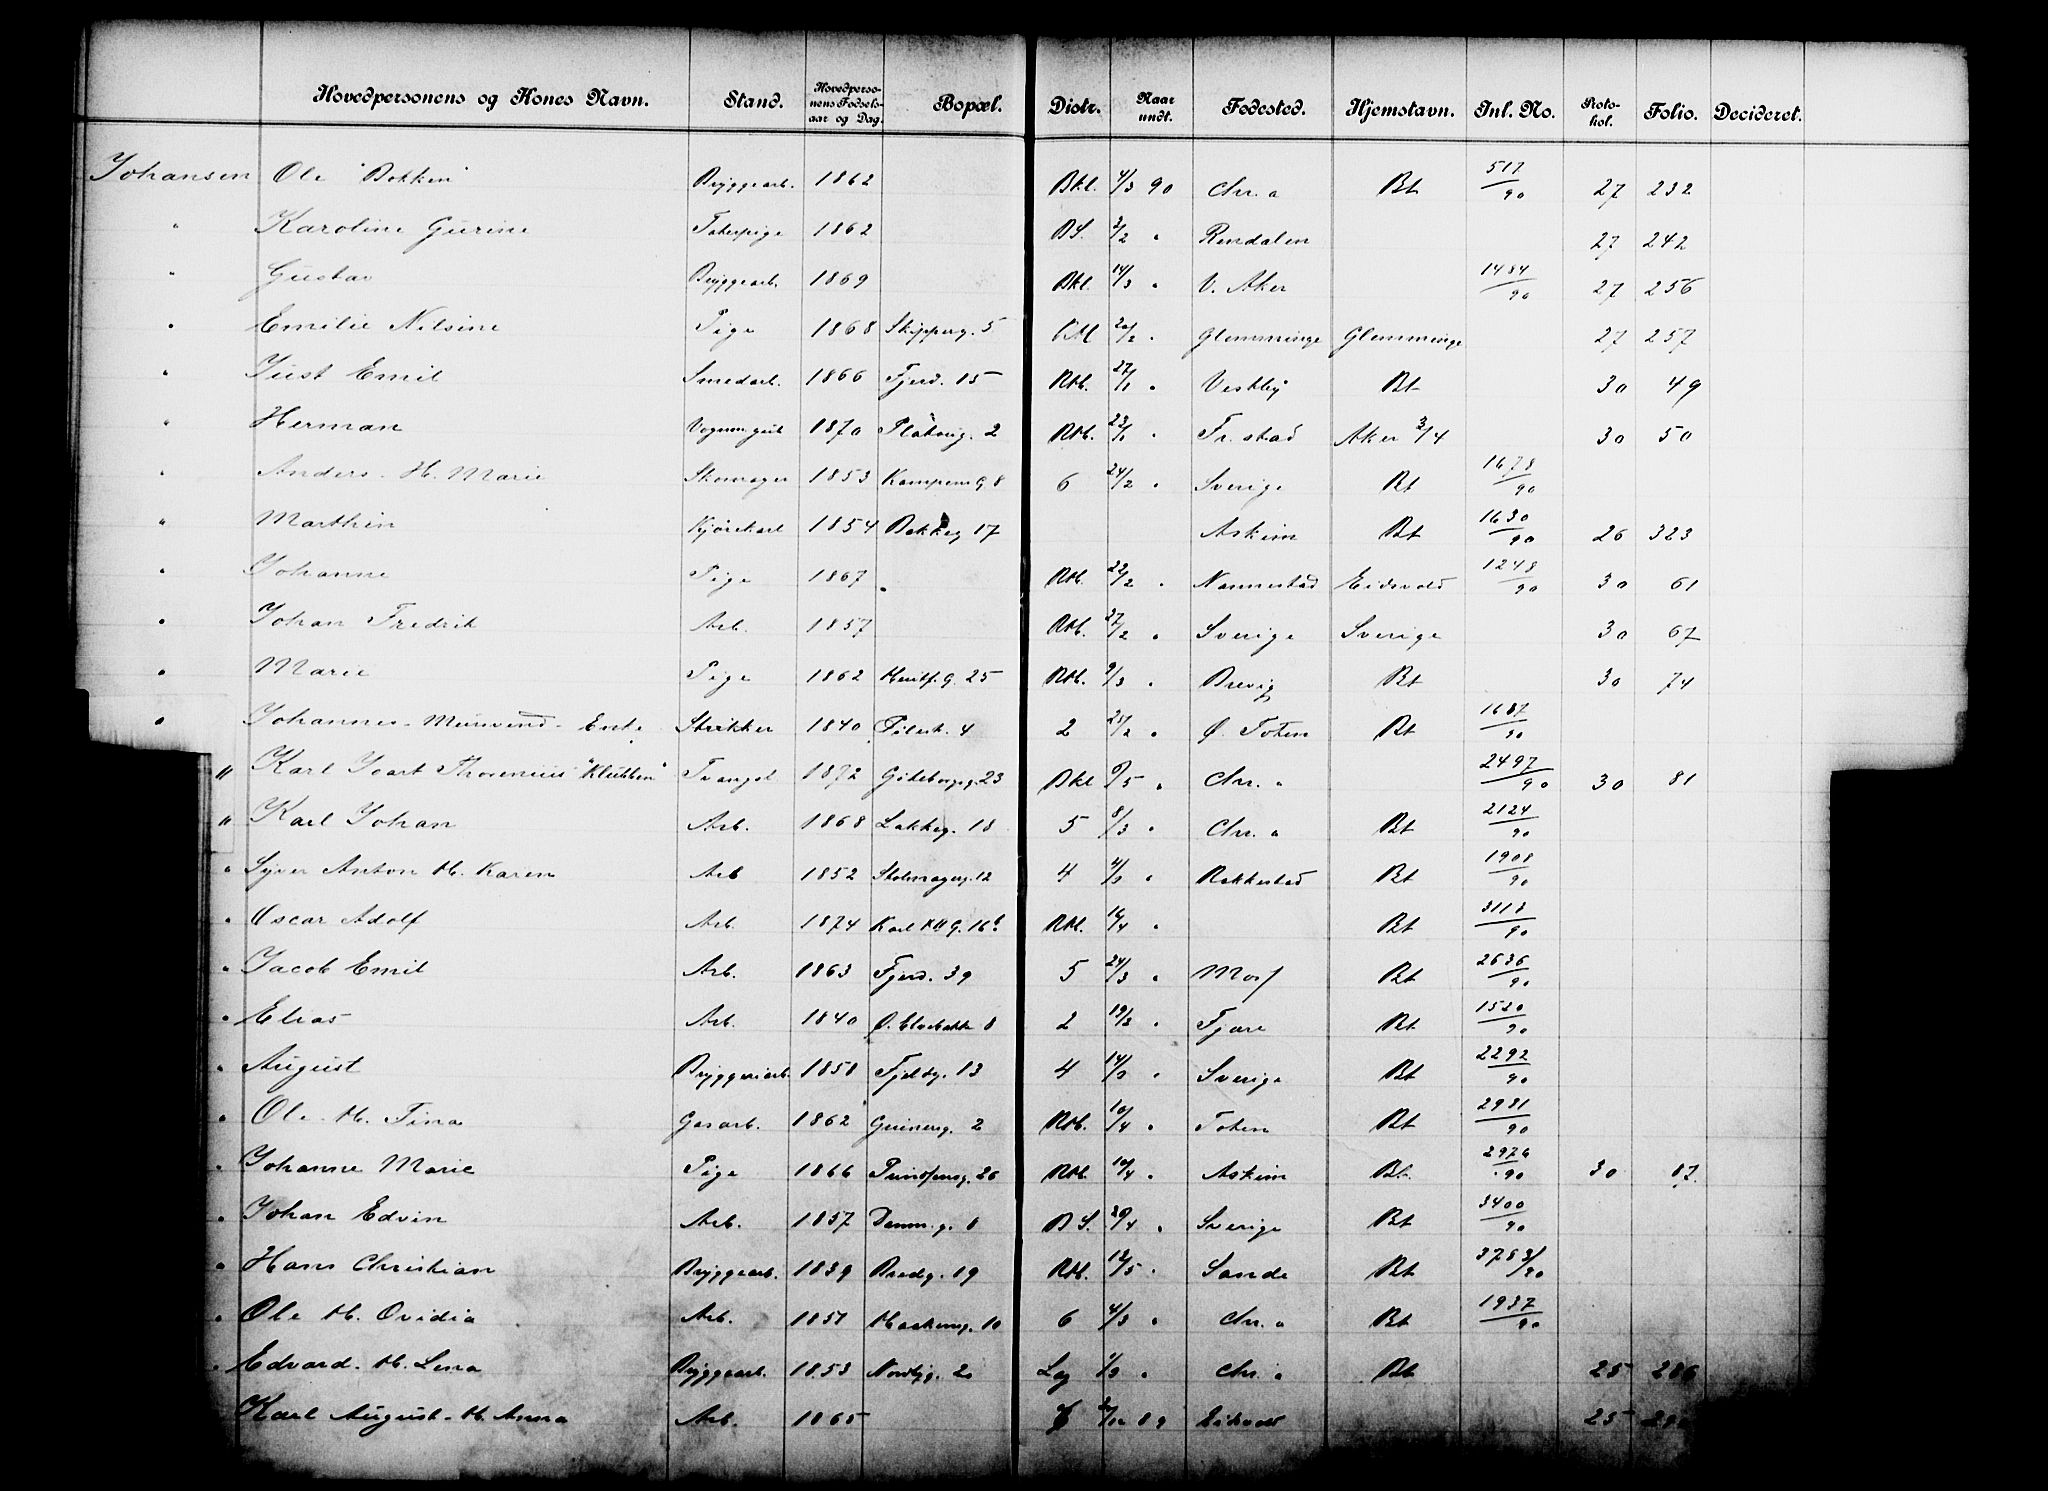 Hovedpersonens og Kones Navn. Stand. Hovedperso-nens Fødsels-aar og Dag. Bopæl. Distr. Naar undt. Fødested. Hjemstavn. Inl. No. Proto-kol. Folio. Decideret.
Johansen Ole "Bakken" Bryggearb. 1862 Bkl. 4/3 90 Chr.a Bt 517/90 27 232
" Karoline Gurine 1862 BS. 3/2 " Rendalen 27 242
" Gustav Bryggearb. 1869 Bkl. 14/3 " V. Aker 1484/90 27 256
" Emilie Nilsine Pige 1868 Skipperg. 5 20/2 " Glemminge Glemminge 27 257
" Just Emil Smedarb. 1866 Fjerd. 15 Rtb. 27/1 " Vestby Bt 30 49
" Herman Vognm.gut 1870 Platoug. 2 Rtb. 22/1 " Fr.stad Aker 3/4 30 50
" Anders - H. Marie Skomager 1853 Kampeng. 8 6 24/2 " Sverige Bt 1678/90
" Marthin Kjørekarl 1854 Bakkeg 17 Askim Bt 1630/90 26 323
" Johanne Pige 1867 Rtb. 22/2 " Nannestad Eidsvold 1248/90 30 61
" Johan Fredrik Arb. 1857 Rtb. 27/2 " Sverige Sverige 30 67
" Marie Pige 1862 G. 25 Rtb. 9/3 " Brevig Bt 30 74
" Johannes - Murvend - Enke Strikker 1840 Pilest. 4 2 25/2 " Ø. Toten Bt 1687/90
" Karl Ivart Thorenius "Klubben" Tvangsl 1872 Göteborgsg. 23 Bkl 6/5 " Chr.a 2497/90 30 81
" Karl Johan Arb. 1868 Lakkeg. 18 5 8/3 " Chr.a Bt 2124/90
" Syver Anton H. Karen Arb 1852 Skomagerg. 12 4 4/3 " Rakkestad Bt 1908/90
" Oscar Adolf Arb. 1874 Karl XII G. 16b Rtb. 16/4 " Bt 3113/90
" Jacob Emil Arb. 1863 Fjerd. 39 5 24/3 " Moss Bt 2636/90
" Elias Arb. 1840 Ø. Elvebakke 8 2 19/3 " Fjære Bt 1520/90
" August Bryggeriarb. 1858 Fjeldg. 13 4 14/3 " Sverige Bt 2292/90
" Ole - H. Tina Gasarb. 1862 Grünerg. 2 Rtb. 10/4 " Toten Bt 2981/90
" Johanne Marie Pige 1866 26 Rtb. 10/4 " Askim Bt. 2976/90 30 87
" Johan Edvin Arb. 1857 Danm.g. 8 BS. 29/4 " Sverige Bt 3400/90
" Hans Christian Bryggearb. 1839 Bredg. 19 Rtb. 12/5 " Sande Bt 3753/90
" Ole H. Ovidia Arb. 1851 10 6 4/3 " Chr.a Bt 1937/90
" Edvard - H. Lena Bryggearb. 1853 Nordbyg. 2 Log 1/3 " Chr.a Bt 25 286
Karl August - H. Anna Arb. 1865 89 Eidsvold 25